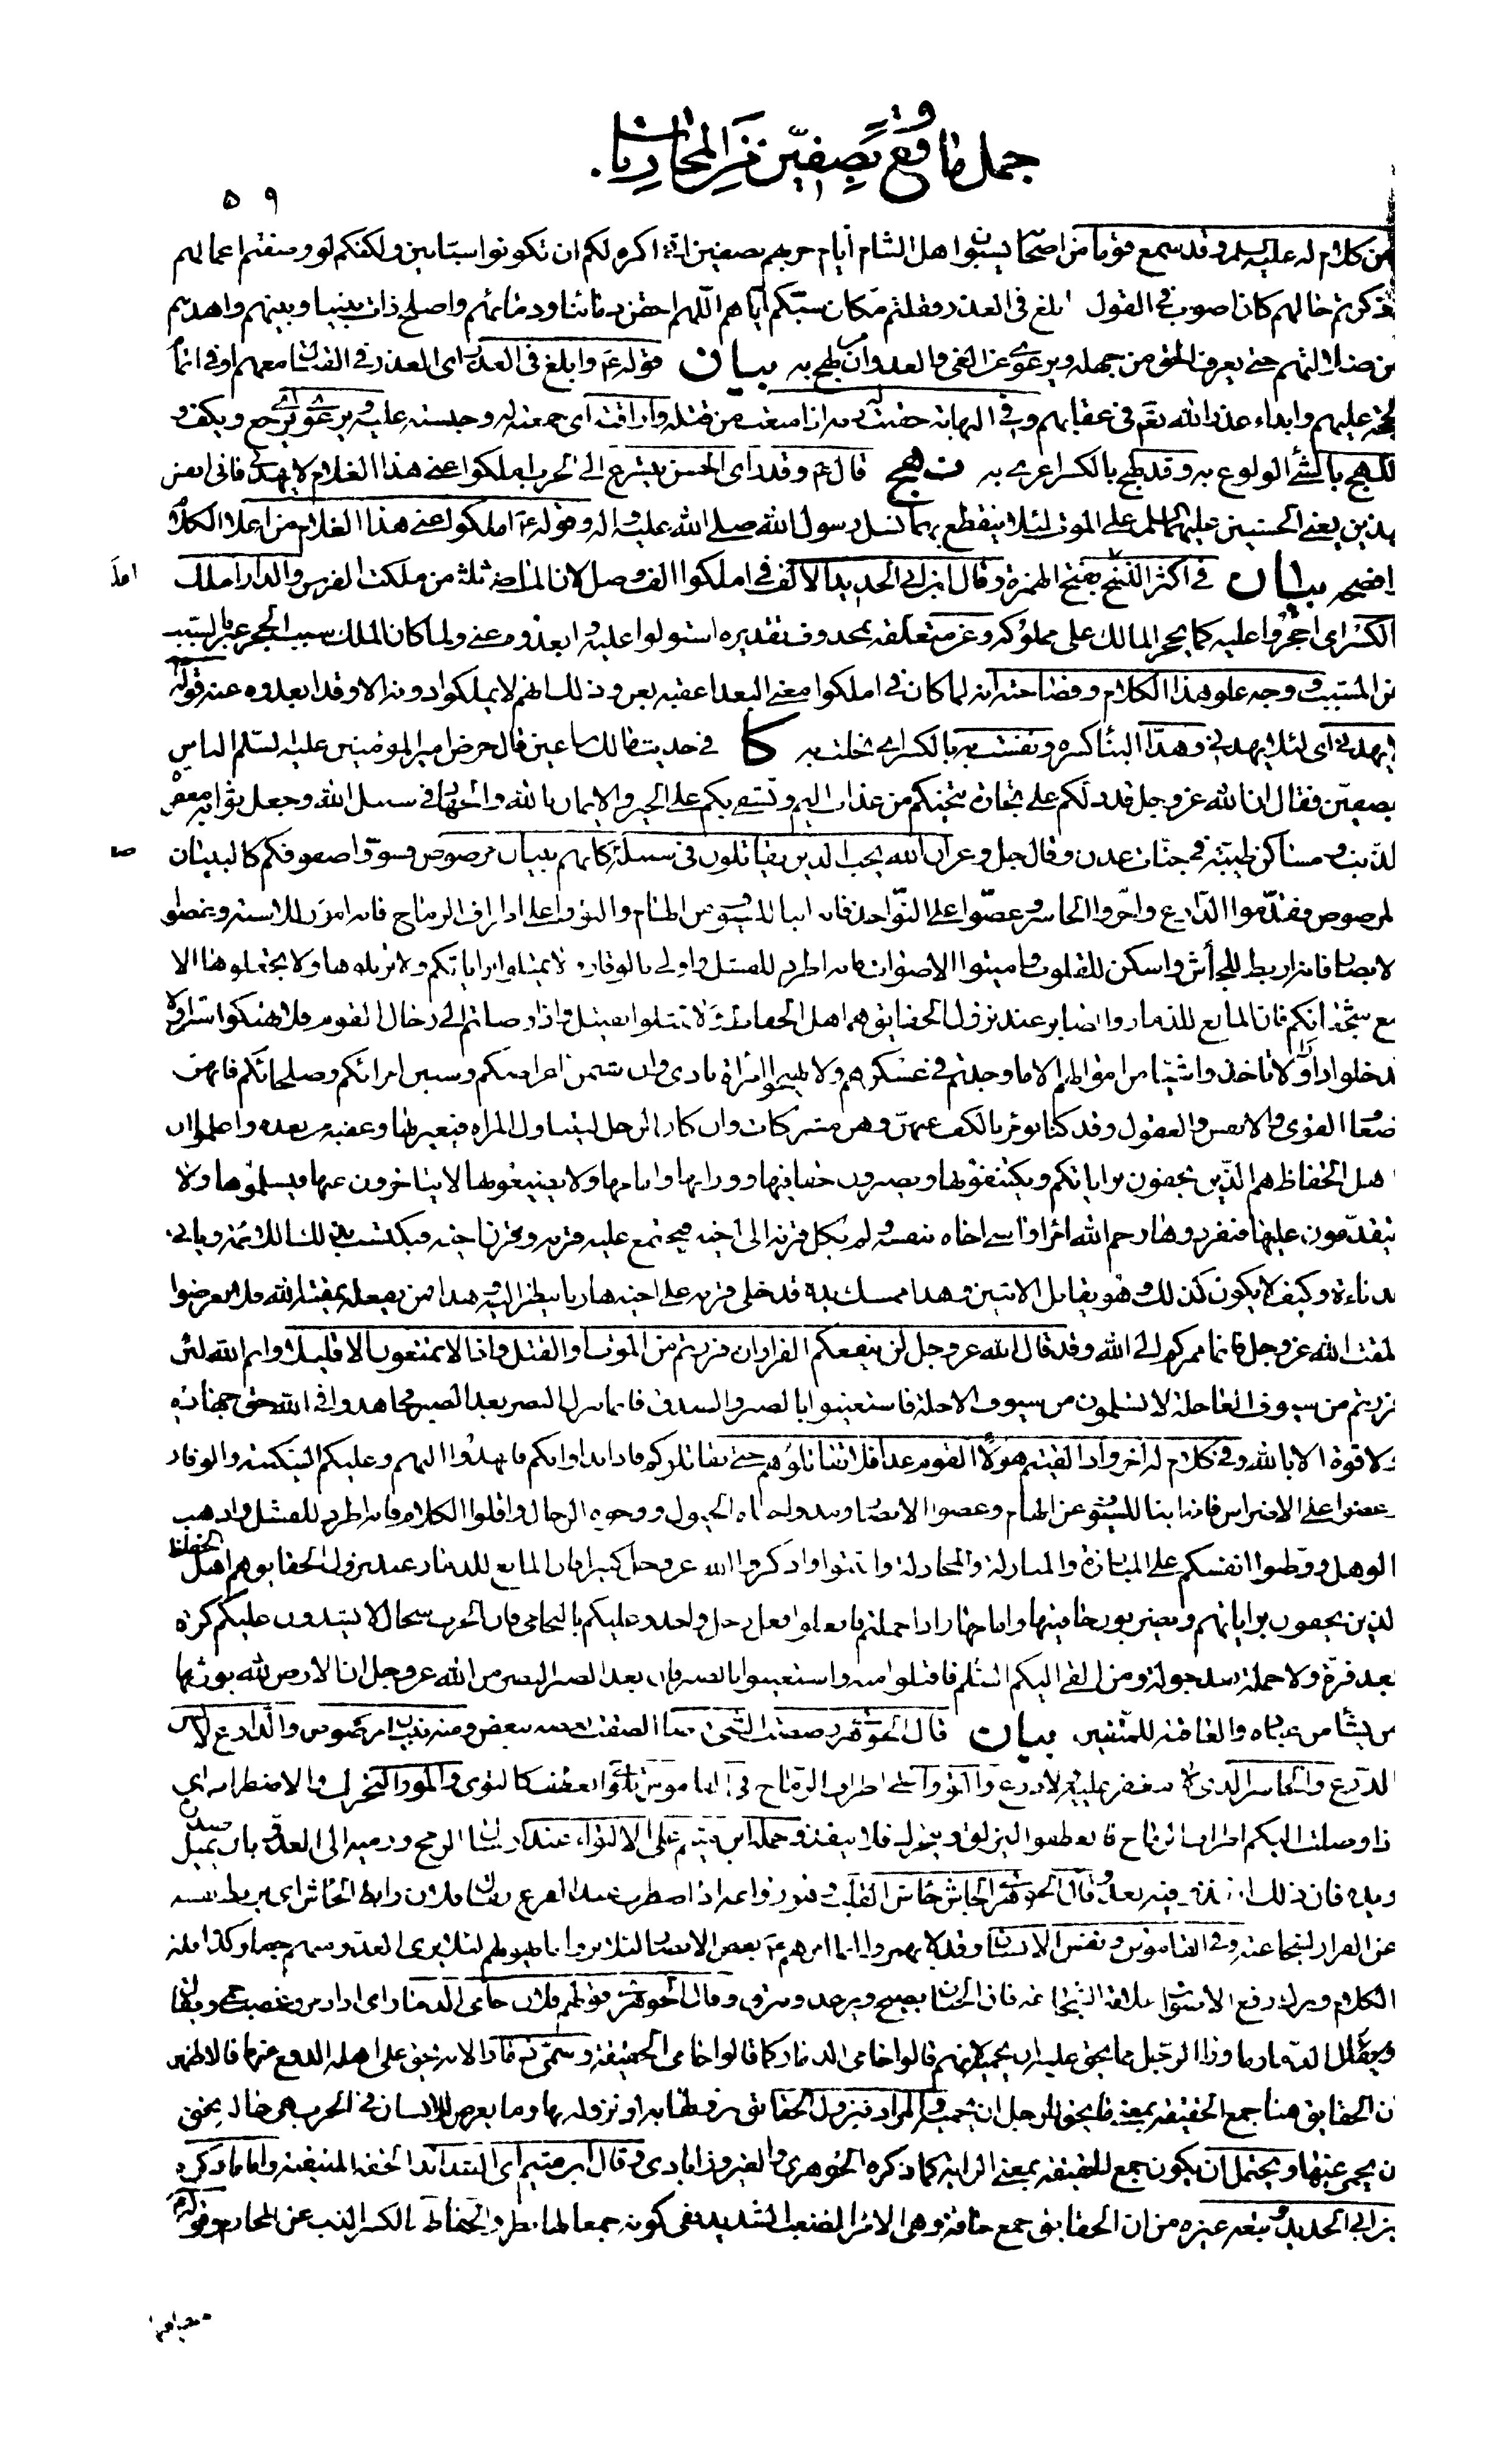 جمل ما وقع بصفين من المحاربات
٥٩
من كلام له عليه السلم وقد سمع قوما من اصحابه يسبون اهل الشام أيام حربهم بصفين انى اكره لكم ان تكونوا سبابين ولكنكم لو وصفتم اعمالهم
وذكرتم حالهم كان اصوب فى القول ابلغ فى العذر وقلتم مكان سبكم اياهم اللهم احقن دمائنا ودمائهم واصلح ذات بيننا وبينهم واهدهم
من ضلالتهم حتى يعرف الحق من جهله ويرعوى عن الغى والعدوان من لهج به بيان قوله ع وابلغ فى العذر اى العذر فى القتال معهم او فى اتمام
الحجة عليهم وابداء عذر الله تعم فى عقابهم وفى النهاية حقنت له دمه اذا منعت من قتله واراقته اى جمعته له وحبسته عليه ويرعوى اى يرجع ويكف و
اللهج بالشئ الولوع به وقد لهج بالكسر اغرى به نهج قال ع وقد راى الحسن يتسرع الى الحرب املكوا عنى هذا الغلام لا يهدنى فانى انفس
بهذين يعنى الحسنين عليهما السلم على الموت لئلا ينقطع بهما نسل رسول الله صلى الله عليه واله وقوله ع املكوا عنى هذا الغلام من اعلا الكلام
وافصحه بيان فى اكثر النسخ بفتح الهمزة وقال ابن ابى الحديد الالف فى املكوا الف وصل لان الماضى ثلثة من ملكت الفرس والدار املك
بالكسر اى احجروا عليه كما يحجر المالك على مملوكه وعن متعلقة بمحذوف تقديره استولوا عليه وابعدوه عنى ولما كان الملك سبب الحجر عبر بالسبب
عن المسبب ووجه علو هذا الكلام وفصاحته انه لما كان فى املكوا معنى البعد اعقبه بعن وذلك انهم لا يملكونه دونه الا وقد ابعدوه عنه قوله
لا يهدنى اى لئلا يهدنى وهذا البناء كسره ونفست به بالكسر اى بخلت به كا فى حديث مالك بن اعين قال حرض امير المومنين عليه السلم الناس
بصفين فقال ان الله عز وجل قد دلكم على تجارة تنجيكم من عذاب اليم وتشفى بكم على الخير الايمان بالله والجهاد فى سبيل الله وجعل ثوابه مغفرة
للذنب ومساكن طيبة فى جنات عدن وقال جل وعز ان الله يحب الذين يقاتلون فى سبيله كانهم بنيان مرصوص فسووا صفوفكم كالبنيان
المرصوص فقدموا الدارع واخروا الحاسر وعضوا على النواجد فانه انبا للسيوف عن الهام والتووا على اطراف الرماح فانه امور للاسنة وغضوا
الابصار فانه اربط للجأش واسكن للقلوب واميتوا الاصوات فانه اطرد للفشل واولى بالوقار ولا تميلوا براياتكم ولا تزيلوها ولا تجعلوها الا
مع شجعانكم فان المانع للذمار والصابر عند نزول الحقايق هم اهل الحفاظ ولا تمثلوا بقتيل واذا وصلتم الى رحال القوم فلا تهتكوا سترا ولا
تدخلوا دارا ولا تاخذوا شيئا من اموالهم الا ما وجدتم فى عسكرهم ولا تهيجوا امراة باذى وان شتمن اعراضكم وسببن امرائكم وصلحائكم فانهن
ضعاف القوى والانفس والعقول وقد كنا نومر بالكف عنهن وهن مشركات وان كان الرجل ليتناول المراة فيعير بها وعقبه من بعده واعلموا ان
اهل الحفاظ هم الذين يحفون براياتهم ويكتنفونها ويصيرون حفافيها وورائها وامامها ولا يضيعونها لا يتاخرون عنها فيسلموها ولا
يتقدمون عليها فيفردوها رحم الله امرا واسى اخاه بنفسه ولم يكل قرنه الى اخيه فيجتمع عليه قرنه وقرن اخيه فيكتسب بذلك اللائمة ويابى
بدناءة وكيف لا يكون كذلك وهو يقاتل الاثنين وهذا ممسك يده قد خلى قرنه على اخيه هاربا ينظر اليه وهذا فمن يفعله يمقته الله فلا تعرضوا
لمقت الله عز وجل فانما ممركم الى الله وقد قال الله عز وجل لن ينفعكم الفرار ان فررتم من الموت او القتل واذا لا تمتعون الا قليلا وايم الله لئن
فررتم من سيوف العاجلة لا تسلمون من سيوف الاجلة فاستعينوا بالصبر والصدق فانما ينزل النصر بعد الصبر فجاهدوا فى الله حق جهاده
ولا قوة الا بالله وفى كلام له اخر واذا لقيتم هولاء القوم غدا فلا تقاتلوهم حتى يقاتلوكم فاذا بداوا بكم فانهدوا اليهم وعليكم السكينة والوقار
وعضوا على الاضراس فانه انبا للسيوف عن الهام وغضوا الابصار ومدوا جباه الخيول ووجوه الرجال واقلوا الكلام فانه اطرد للفشل واذهب
بالوهل ووطنوا انفسكم على المبارزة والمنازلة والمجادلة واثبتوا واذكروا الله عز وجل كثيرا فان المانع للذمار عند نزول الحقايق هم اهل الحفاظ
الذين يحفون براياتهم ويضربون حافتيها وامامها واذا حملتم فافعلوا فعل رجل واحد وعليكم بالتحامى فان الحرب سجال لا يشتدن عليكم كرة
بعد فرة ولا حملة بعد جولة ومن القى اليكم السلم فاقبلوا منه واستعينوا بالصبر فان بعد الصبر النصر من الله عز وجل ان الارض لله يورثها
من يشاء من عباده والعاقبة للمتقين بيان قال الجوهرى رصصت الشئ الصقت بعضه ببعض ومنه بنيان مرصوص والدارع لابس
الدرع والحاسر الذى لا مغفر عليه ولا درع والتووا على اطراف الرماح فى القاموس تلوى انعطف كالتوى والمور التحرك والاضطراب اى
اذا وصلت اليكم اطراف الرماح فانعطفوا ليزلق ويتحرك فلا ينفذ وحمله ابن ميثم على الالتواء عند ارسال الرمح ورميه الى العدو بان يميل صدره
ويده فان ذلك انفذ فيه بعد وقال الجوهرى الجاش جاش القلب وهو رواعه اذا اضطرب عند الفزع يقال فلان رابط الجاش اى يربط نفسه
عن الفرار لشجاعته وفى القاموس ونفس الانسان وقد لا يهمز وانما امرهم ع بغض الابصار لئلا يروا ما يهولهم لئلا يرى العدو منهم جبنا وكذا قلة
الكلام وترك رفع الاصوات علامة الشجاعة فان الجبان يصيح ويرعد ويبرق وقال الجوهرى قولهم فلان حامى الذمار اى اذا ذمر وغضب حمى ويقال
ويقال الذمار ما وراء الرجل مما يحق عليه ان يحميه لانهم قالوا حامى الذمار كما قالوا حامى الحقيقة وسمى ذمارا لانه يحق على اهله الدفع عنها فالاظهر
ان الحقايق هنا جمع الحقيقة بمعنى ما يحق للرجل ان يحميه والمراد بنزول الحقايق نزولها به او نزوله بها وما يعرض للانسان فى الحرب هى حالة يحق
ان يحمى عنها ويحتمل ان يكون جمع الحقيقة بمعنى الراية كما ذكره الجوهرى والفيروزابادى وقال ابن ميثم اى الشدايد الحقة المتيقنة واما ما ذكره
ابن ابى الحديد وتبعه غيره من ان الحقايق جمع حاقة وهى الامر الصعب الشديد ففى كونه جمعا لها نظر والحفاظ بالكسر الذب عن المحارم وقوله ع